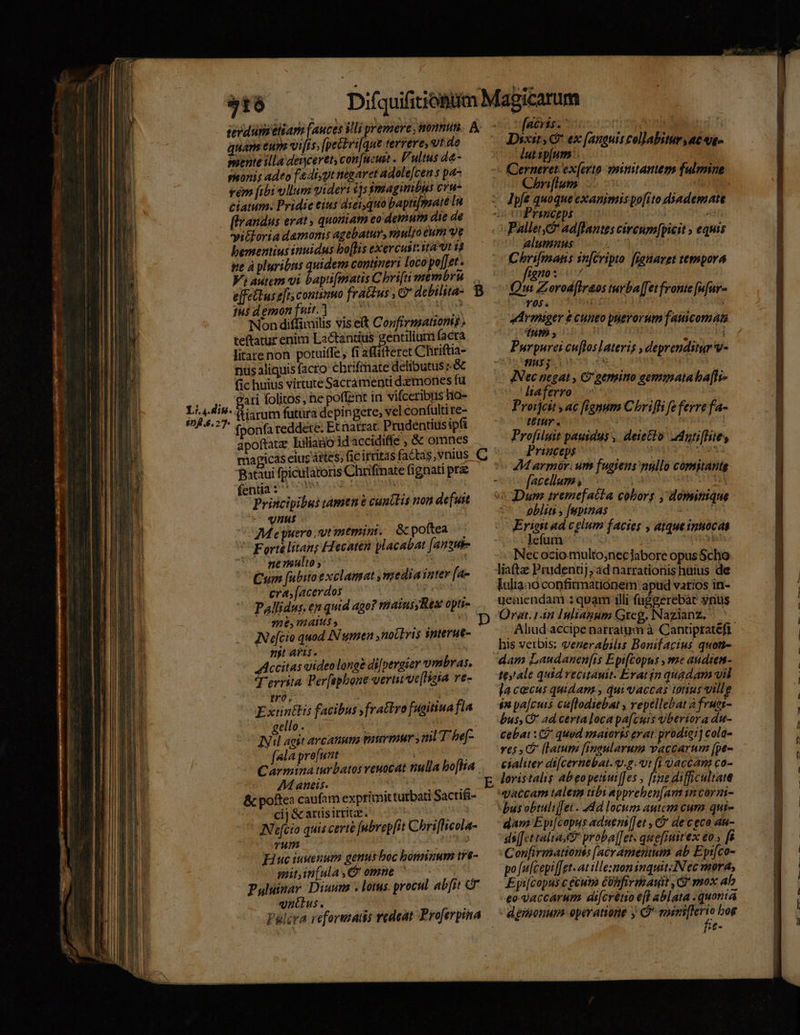 916 Disquisitionum Magicarum
terdum etiam fauces illi premere, nonnun. A
quam eum visis, spectrisque terrere, vt do
mente illa deijceret, confueuit. Vultus dæ-
monis adeo fœdi, vt negaret adolescens pa-
rem sibi vllum videri ijs imaginibus cru-
ciatum. Pridie eius diei, quo baptismate lu
strandus erat, quoniam eo demum die de
victoria dæmonis agebatur, multo eum ve
hementius inuidus hostis exercuit: ita vt is
ne à pluribus quidem contineri loco posset.
Vt autem vi baptismatis Christi membrũ
effectus est, continuo fractus, & debilita- B
tus demon fuit.]
Non dissimilis vis est Confirmationis,
testatur enim Lactantius gentilium sacra
litare non potuisse, si assisteret Christia-
nus aliquis sacro chrismate delibutus: &
sic huius virtute Sacramenti dæmones fu
gari solitos, ne possent in visceribus ho-
Li.4.diu. stiarum futura depingere, vel consulti re-
inst.c.27. sponsa reddere. Et narrat Prudentius ipsi
apostatæ Iuliano id accidisse, & omnes
magicas eius artes, sic irritas factas, vnius C
Bataui spiculatoris Chrismate signati præ
sentia:
Principibus tamen è cunctis non defuit
vnus
Me puero, vt memini. & postea
Forte litans Hecaten placabat sangui-
ne multo,
Cum subito exclamat, media inter sa-
cra, sacerdos
Pallidus, en quid ago? maius, Rex opti-
me, maius,
Nescio quod Numen, nostris interue-
nit aris.
Accitas video longè dispergier vmbras.
Territa Persephone vertit vestigia re-
tro,
Extinctis facibus, fractro fugitiua fla
gello.
Nil agit arcanum murmur, nil Thes-
sala prosunt
Carmina turbatos reuocat nulla hostia
Maneis.
& postea causam exprimit turbati Sacrifi-
cij & artis irritæ.
Nescio quis certè subrepsit Christicola-
rum
Huc iuuenum genus hoc hominum tre-
mit, insula, & omne
Puluinar Diuum. lotus procul absit &
vnctus.
Pulcra reformatis redeat Proserpina
sacris.
Dixit, & ex sanguis collabitur, ac ve-
lut ipsum
Cerneret exserto minitantem fulmine
Christum
Ipse quoque exanimis posito diademate
Princeps
Pallet, & adstantes circumspicit, equis
alumnus
Chrismatis inscripto signaret tempora
signo:
Qui Zoroastraos turbasset fronte susur-
ros.
Armiger è cuneo puerorum fauicoman
tum,
Purpurei custos lateris, deprenditur v-
nus:
Nec negat, & gemino gemmata hasti-
lia ferro
Proijcit, ac signum Christi se ferre fa-
tetur.
Prosiluit pauidus, deiecto Antistite,
Princeps
Marmor: um fugiens nullo comitante
sacellum,
Dum tremefacta cohors, dominique
oblita, supinas
Erigit ad cælum facies, atque innocat
Iesum
Nec ocio multo, nec labore opus Scho
liastæ Prudentij, ad narrationis huius de
Iuliano confirmationem apud varios in-
ueniendam: quam illi suggerebat vnus
D Orat. 1. in Iulianum Greg. Nazianz.
Aliud accipe narratum à Cantipratẽsi
his verbis: venerabilis Bonifacius quon-
dam Laudanensis Episcopus, me audien-
te, tale quid recitauit. Erat in quadam vil
la cæcus quidam, qui vaccas totius villę
in pascuis custodiebat, repellebat à frugi-
bus, & ad certa loca pascuis vberiora du-
cebat: & quod maioris erat prodigij colo-
res, & statum singularum vaccarum spe-
cialiter discernebat. v.g. vt si vaccam co-
E loris talis ab eo petiuisses, sine difficultate
vaccam talem tibi apprehensam in corni-
bus obtulisset. Ad locum autem cum qui-
dam Episcopus aduenisset, & de cęco au-
disset talia, & probasset, quesiuit ex eo, si
Confirmationis sacramentum ab Episco-
po suscepisset. at ille: non inquit. Nec mora,
Episcopus cęcum confirmauit, & mox ab
eo vaccarum discretio est ablata. quonia
demonum operatione, & ministerio hoc
fie-